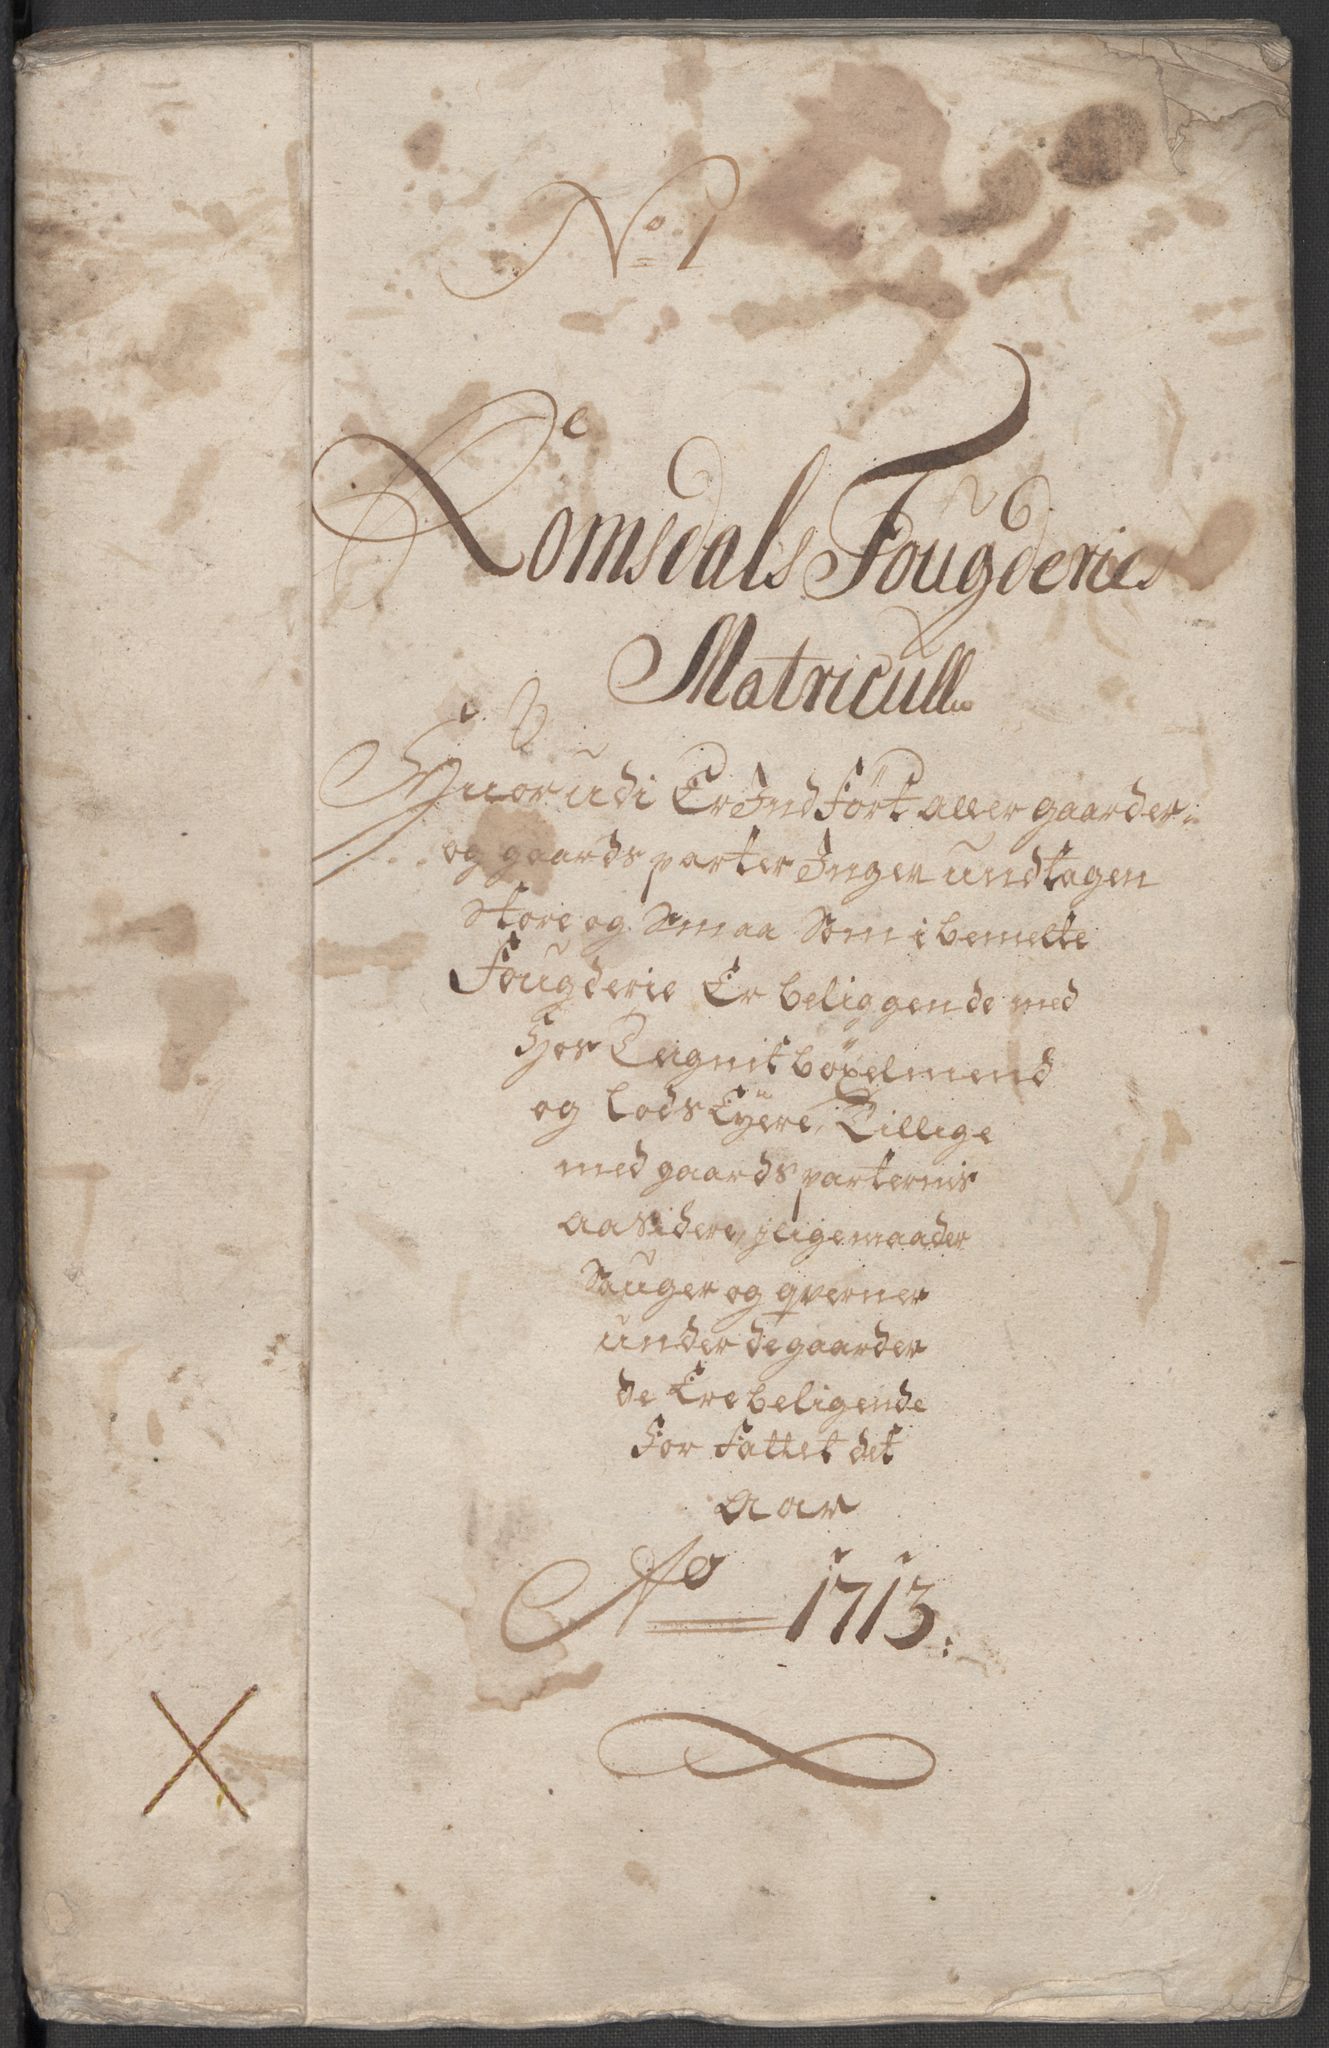 No 1
Romsdals Fougderies
Matricull
Huorudi Er Indført aller gaarder
og gaards parter Ingen undtagen
store og Smaa Som i bemelte
Fougderie Er beliggende med
Hos Tegnit bÿxelmend
og Lods Eÿere, Tillige
med gaards parternis
aasidere, jligemaader
Sauger og qverner
under de gaarder
de Ere beligende
For Fattet det
Aar
Ao 1713